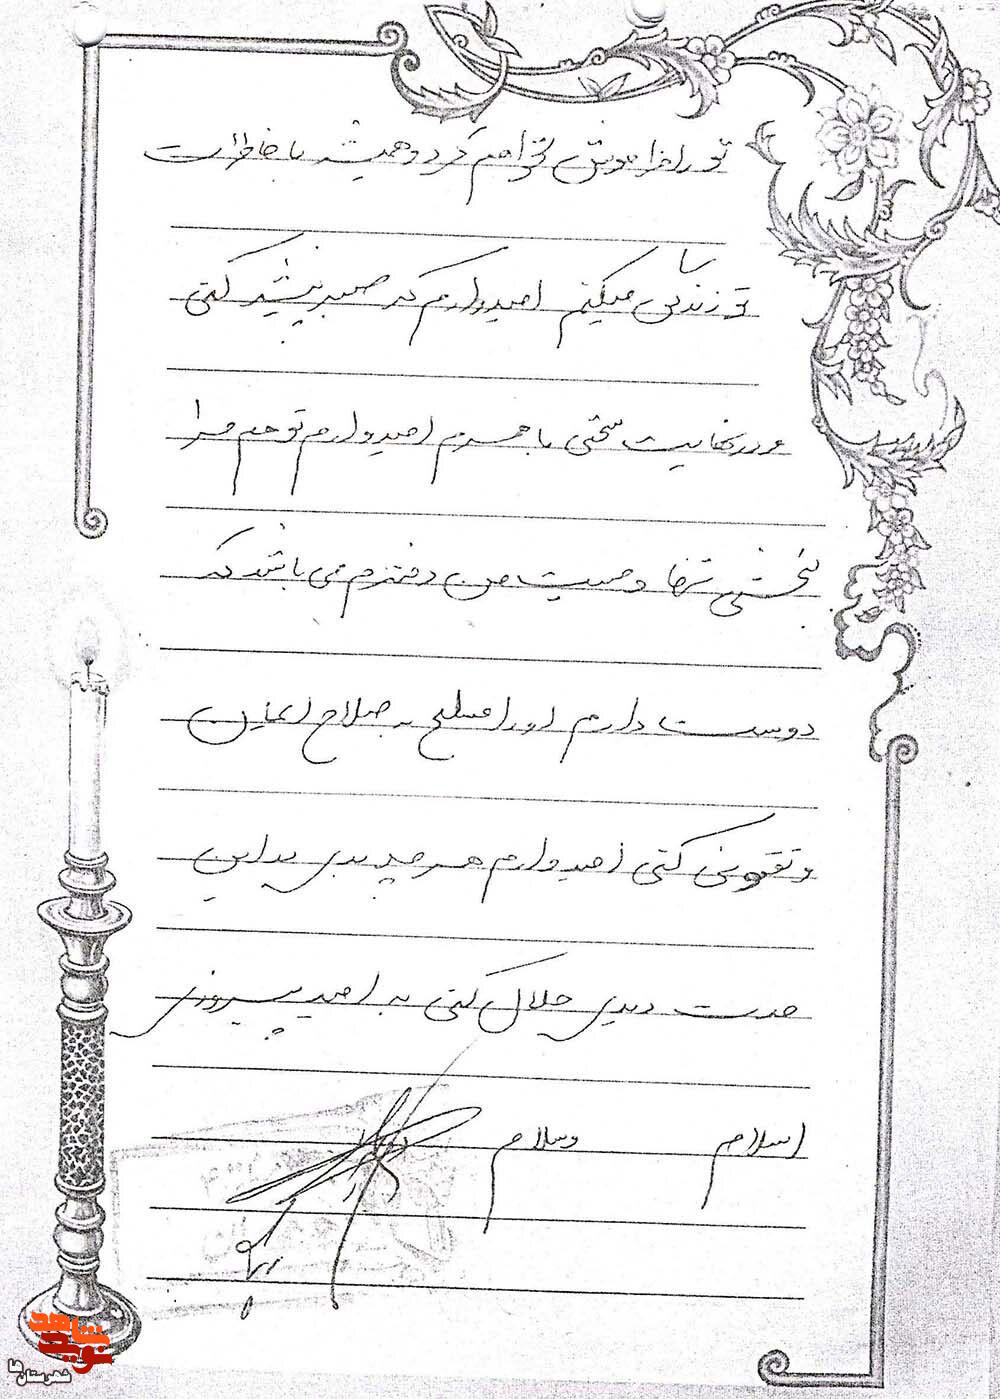 تو را فراموش نخواهم کرد و همیشه با خاطرات
تو زندگی میکنم امیدوارم که صبر پیشه کنی
و در نهایت سختی با همسرم امیدوارم تو هم مرا
ببخشی تنها وصیت من دخترم می باشد که
دوست دارم او را مسلح به صلاح ایمان
و تقوی کنی امیدوارم هر چه بدی بد این
مدت دیدی حلال کنی به امید پیروزی
اسلام وسلام
نوید شاهد
شهرستان ها